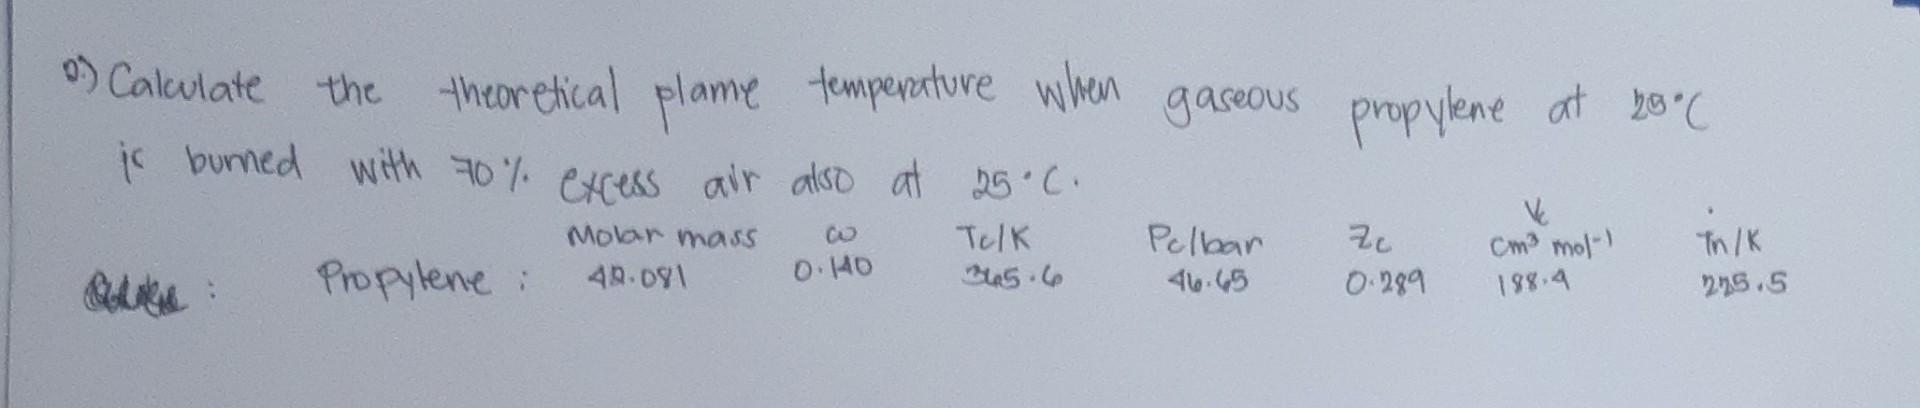 Q.) Calculate the theoretical plame temperature when gaseous propylene at 25°C
is burned with 70% excess air also at 25°C.
Vc
Molar mass ω Tc/K Pc/bar Zc cm³ mol⁻¹ Tn/K
: Propylene : 42.081 0.140 365.6 46.65 0.289 188.4 225.5